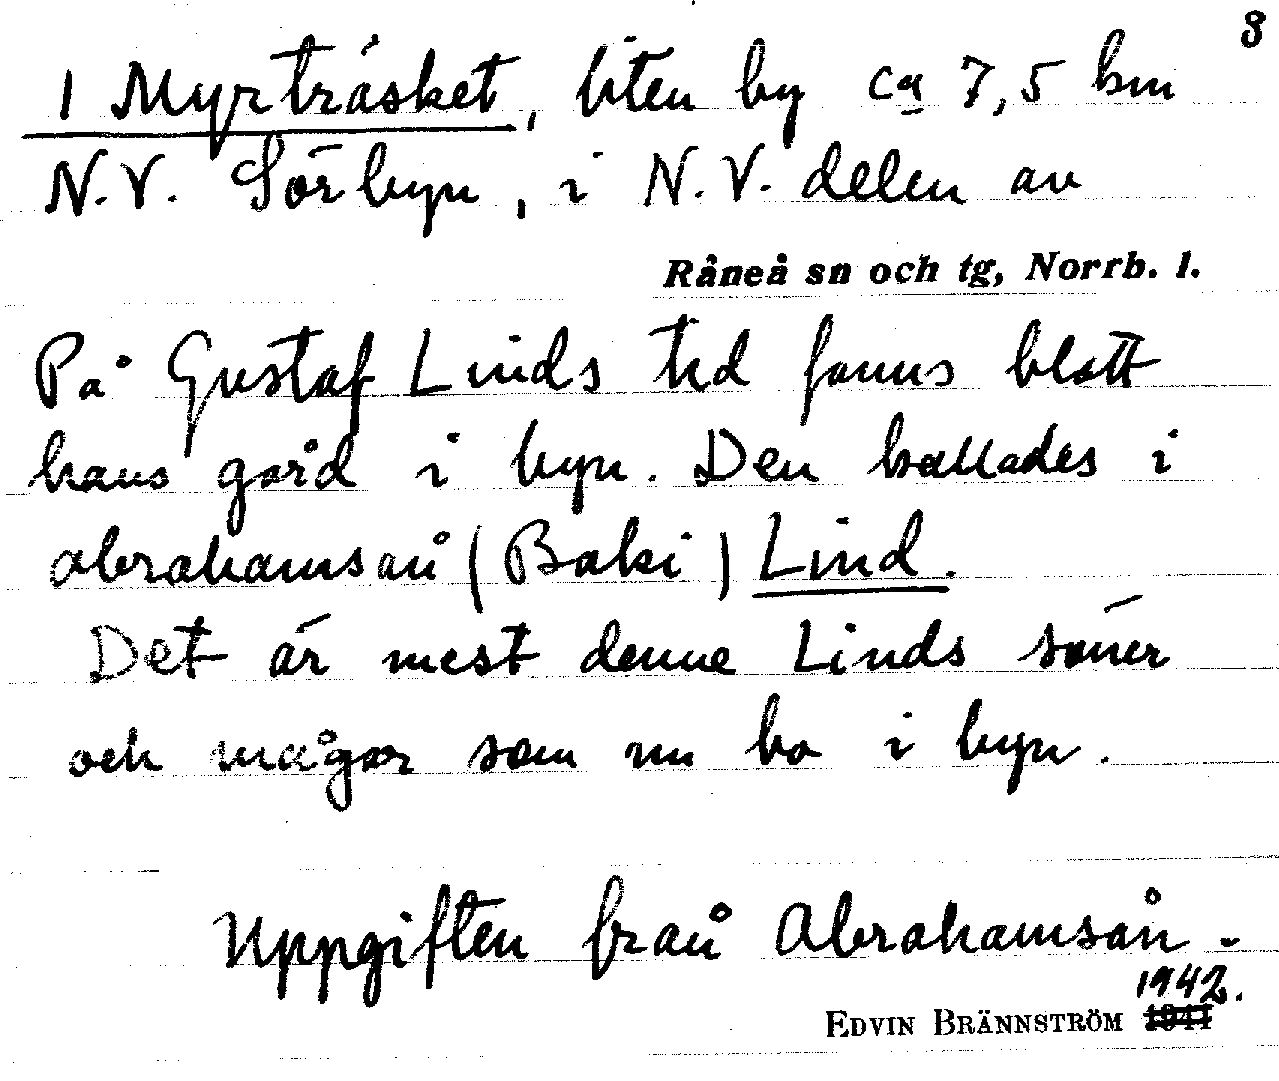 3
1 Myrträsket, liten by ca 7,5 km
N.V. Sörbyn, i N.V. delen av
Råneå sn och tg, Norrb. l.
På Gustaf Linds tid fanns blott
hans gård i byn. Den kallades i
Abrahamsån (Baki) Lind.
Det är mest denne Linds söner
och mågar som nu bo i byn.
Uppgiften från Abrahamsån.
1942.
EDVIN BRÄNNSTRÖM 1941